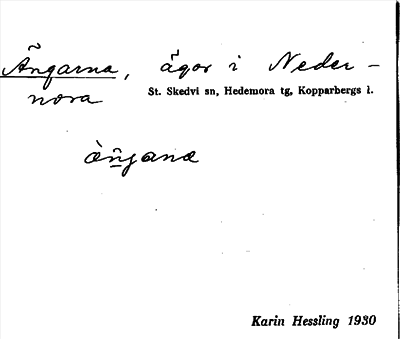 Ängarna, ägor i Neder-
nora
St. Skedvi sn, Hedemora tg, Kopparbergs l.
Karin Hessling 1930